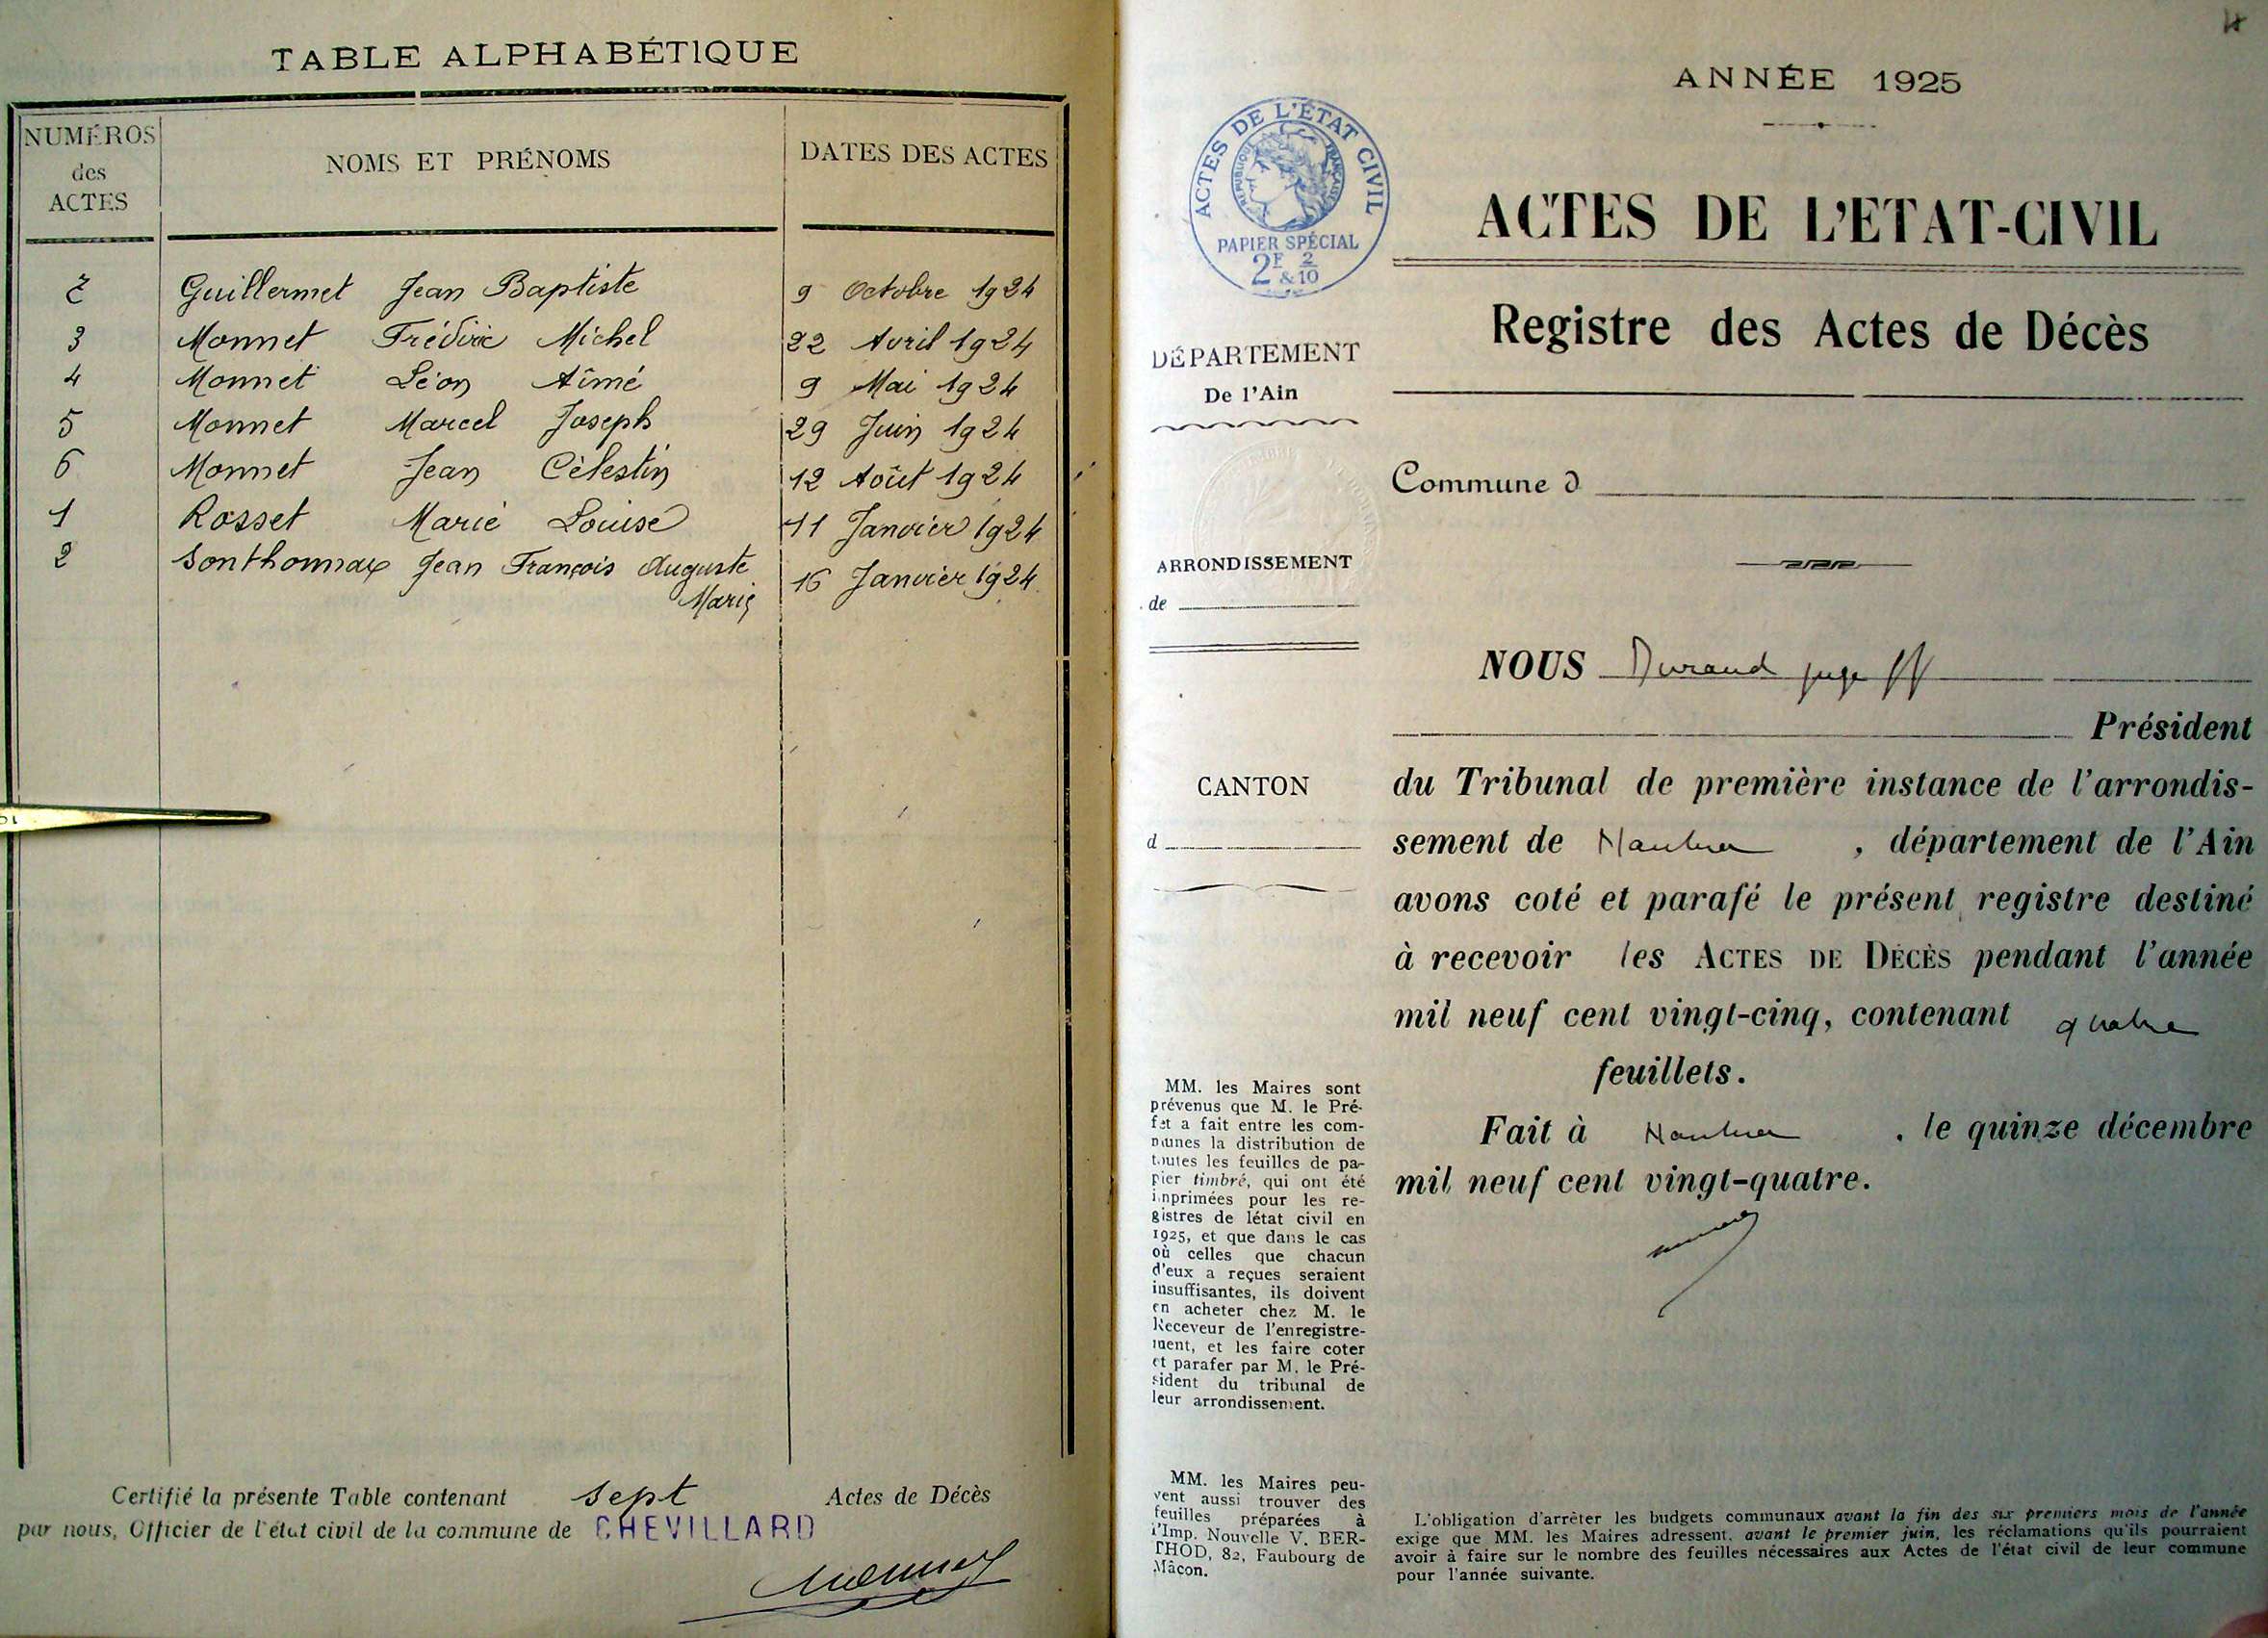 TABLE ALPHABÉTIQUE
NUMÉROS
des
ACTES
NOMS ET PRÉNOMS
DATES DES ACTES
7 Guillermet Jean Baptiste 9 Octobre 1924
3 Monnet Frédéric Michel 22 Avril 1924
4 Monnet Léon Aîmé 9 Mai 1924
5 Monnet Marcel Joseph 29 Juin 1924
6 Monnet Jean Célestin 12 Août 1924
1 Rosset Marie Louise 11 Janvier 1924
2 Sonthonnax Jean François Auguste
Marie 16 Janvier 1924
Certifié la présente Table contenant sept Actes de Décès
par nous, Officier de l'état civil de la commune de CHEVILLARD
Monnet
ANNÉE 1925
ACTES DE L'ÉTAT CIVIL
RÉPUBLIQUE FRANÇAISE
PAPIER SPÉCIAL
2F & 2/10
ACTES DE L'ETAT-CIVIL
Registre des Actes de Décès
DÉPARTEMENT
De l'Ain
Commune d
ARRONDISSEMENT
de
NOUS Durand juge ff
Président
CANTON
d
du Tribunal de première instance de l'arrondis-
sement de Nantua , département de l'Ain
avons coté et parafé le présent registre destiné
à recevoir les ACTES DE DÉCÈS pendant l'année
mil neuf cent vingt-cinq, contenant quatre
feuillets.
Fait à Nantua , le quinze décembre
mil neuf cent vingt-quatre.
MM. les Maires sont
prévenus que M. le Pré-
fet a fait entre les com-
munes la distribution de
toutes les feuilles de pa-
pier timbré, qui ont été
imprimées pour les re-
gistres de létat civil en
1925, et que dans le cas
où celles que chacun
d'eux a reçues seraient
insuffisantes, ils doivent
en acheter chez M. le
Receveur de l'enregistre-
ment, et les faire coter
et parafer par M. le Pré-
sident du tribunal de
leur arrondissement.
MM. les Maires peu-
vent aussi trouver des
feuilles préparées à
l'Imp. Nouvelle V. BER-
THOD, 82, Faubourg de
Mâcon.
L'obligation d'arrêter les budgets communaux avant la fin des six premiers mois de l'année
exige que MM. les Maires adressent, avant le premier juin, les réclamations qu'ils pourraient
avoir à faire sur le nombre des feuilles nécessaires aux Actes de l'état civil de leur commune
pour l'année suivante.